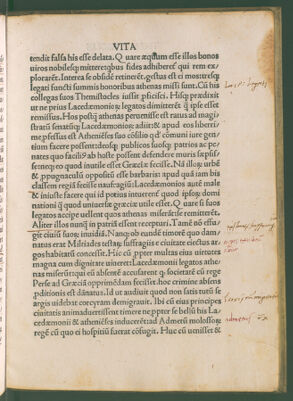 VITA
tendit falsa his esse delata. Quare æquum esse illos bonos
uiros nobilesq; mitteret quibus fides adhiberet qui rem explo
rarēt. Interea se obsidē retinerēt. gestus est ei mos: tresq;
legati functi summis honoribus athenas missi sunt. Cū his
collegas suos Themistocles iussit pficisci. Hisq; prædixit
ut ne prius Lacedæmonioꝝ legatos dimitterent ꝗ̃ ipse esset
remissus. Hos postq̃ athenas peruenisse est ratus ad magi-
stratū senatūq; Lacedæmonioꝝ adiit: & apud eos liberri-
me pfessus est Atheniēses suo cōsilio qd' cōmuni iure gen-
tium facere possent: deosq; publicos suosq; patrios ac pe-
nates quo facilius ab hoste possent defendere muris sæpsis
se: neq; in eo quod inutile esset Græciæ fecisse. Nā illoꝝ urbē
ut ppugnaculū oppositū esse barbaris: apud quā iam bis
classem regiā fecisse naufragiū: Lacedæmonios autē male
& iniuste facere qui id potius intuerent quod ipsoꝝ domi
nationi ꝗ quod uniuersæ græciæ utile esset. Quare si suos
legatos accipe uellent quos athenas miserāt: se remitterēt.
Aliter illos nunq̃ in patriā essent recepturi. Tamē nō effu-
git ciuiū suoꝝ inuidiā. Nanq; ob eundē timorē quo dam-
natus erat Miltiades testaꝝ suffragiis e ciuitate eiectus ar-
gos habitatū concessit. Hic cū ppter multas eius uirtutes
magna cum dignitate uiueret: Lacedæmonii legatos athe
nas miserūt: qui eū absentē accusarent ꝙ societatē cū rege
Perse ad Græciā opprimēdam fecisset. hoc crimine absens
pditionis est dānatus. Id ut audiuit quod non satis tutū se
argis uidebat corcyram demigrauit. Ibi cū eius principes
ciuitatis animaduertisset timere ne ppter se bellū his La-
cedæmonii & atheniēses inducerēt: ad Admetū molossoꝝ
regē cū quo ei hospitiū fuerat cōfugit. Huc cū uenisset &